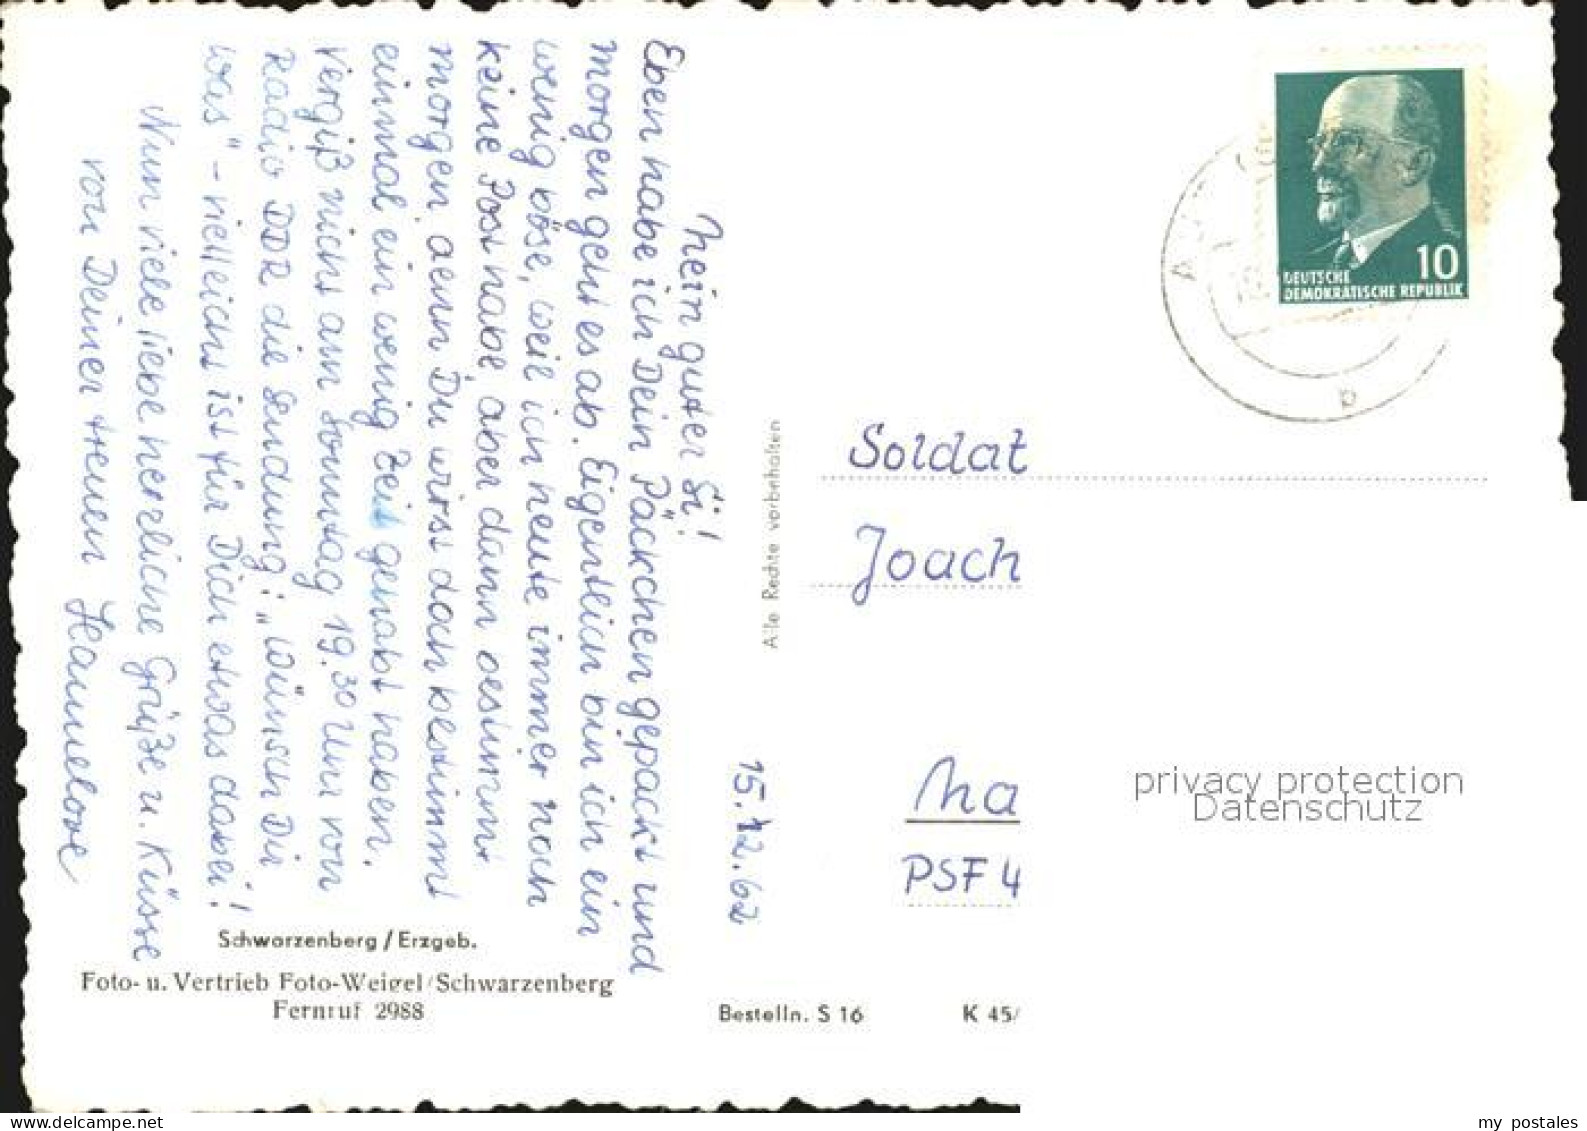 Mein guter Si!
Eben habe ich Dein Päckchen gepackt und
morgen geht es ab. Eigentlich bin ich ein
wenig böse, weil ich heute immer noch
keine Post habe, aber dann bestimmt
morgen, denn Du wirst doch bestimmt
einmal ein wenig Zeit gehabt haben.
Vergiß nicht am Sonntag 19.30 Uhr von
Radio DDR die Sendung: „Wünsch Dir
was" - vielleicht ist für Dich etwas dabei!
Nun viele liebe herzliche Grüße u. Küsse
von Deiner treuen Hannelore
15.12.62
Schwarzenberg / Erzgeb.
Foto- u. Vertrieb Foto-Weigel/Schwarzenberg
Fernruf 2988
Alle Rechte vorbehalten
Bestelln. S 16
K 45/
10
DEUTSCHE
DEMOKRATISCHE REPUBLIK
Soldat
Joach
Ma
PSF 4
privacy protection
Datenschutz
www.delcampe.net
my_postales